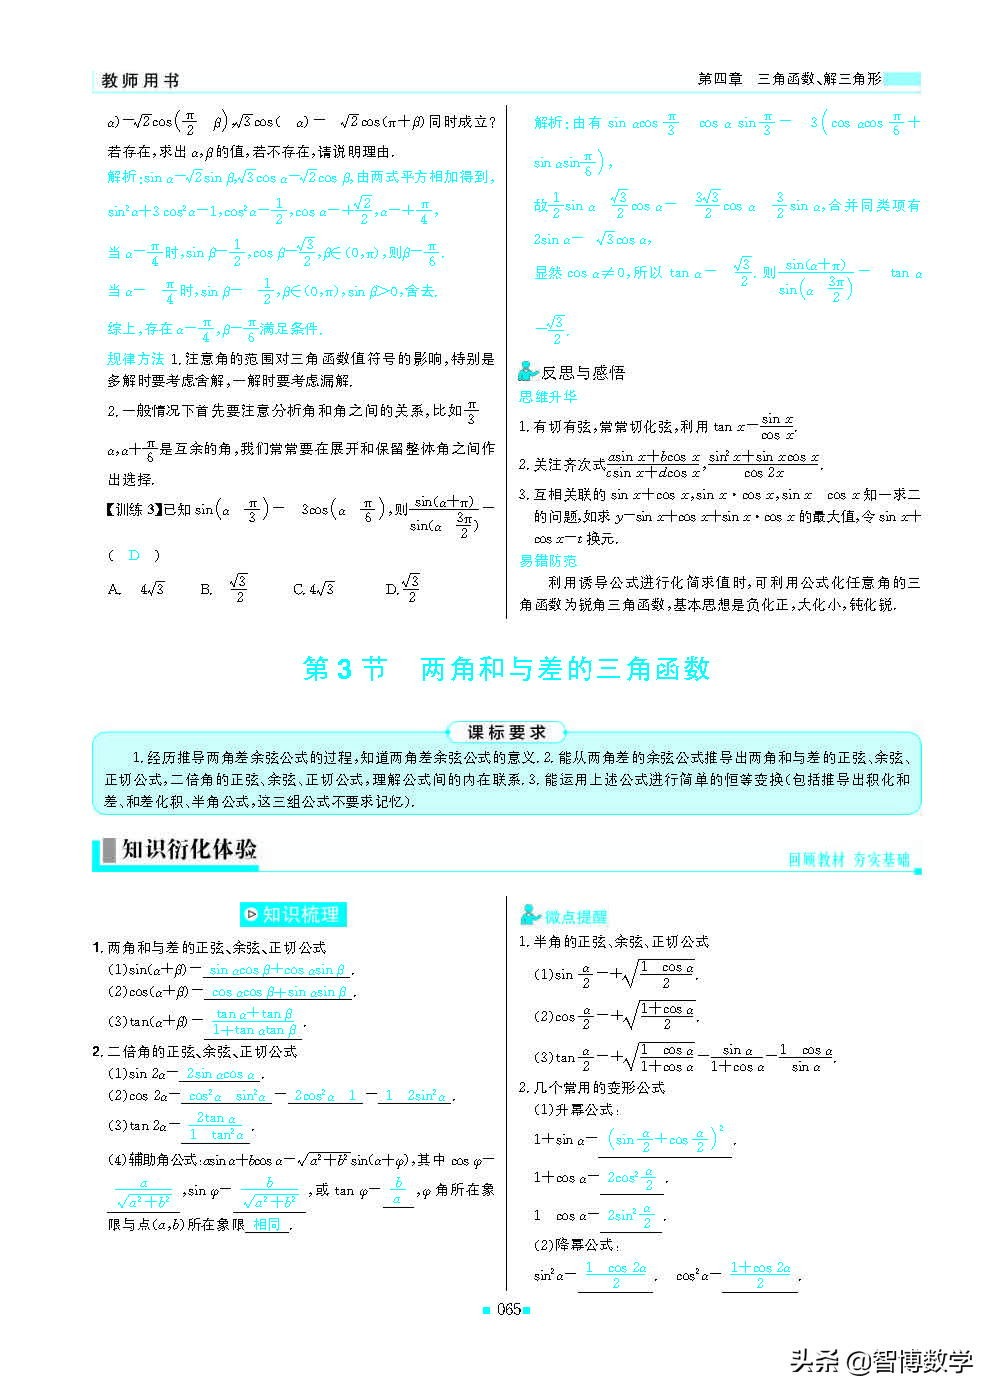 教师用书
第四章 三角函数、解三角形
α)-√2cos(π/2 β),√3cos( α)- √2cos(π+β)同时成立?
若存在,求出α,β的值,若不存在,请说明理由.
解析:sin α-√2sin β,√3cos α-√2cos β,由两式平方相加得到,
sin²α+3cos²α-1,cos²α-1/2,cos α-+√2/2,α-+π/4,
当α-π/4时,sin β-1/2,cos β-√3/2,β∈(0,π),则β-π/6.
当α- π/4时,sin β- 1/2,β∈(0,π),sin β>0,舍去.
综上,存在α-π/4,β-π/6满足条件.
规律方法 1.注意角的范围对三角函数值符号的影响,特别是
多解时要考虑舍解,一解时要考虑漏解.
2.一般情况下首先要注意分析角和角之间的关系,比如π/3
α,α+π/6是互余的角,我们常常要在展开和保留整体角之间作
出选择.
【训练3】已知sin(α π/3)- 3cos(α π/6),则sin(α+π)/sin(α 3π/2)-
( D )
A. 4√3 B. √3/2 C.4√3 D.√3/2
解析:由有 sin αcos π/3 cos α sin π/3- 3(cos αcos π/6+
sin αsin π/6),
故1/2sin α √3/2cos α- 3√3/2cos α 3/2sin α,合并同类项有
2sin α- √3cos α,
显然cos α≠0,所以 tan α- √3/2.则sin(α+π)/sin(α 3π/2)- tan α
-√3/2.
反思与感悟
思维升华
1.有切有弦,常常切化弦,利用tan x-sin x/cos x.
2.关注齐次式asin x+bcos x/csin x+dcos x,sin²x+sin xcos x/cos 2x.
3.互相关联的sin x+cos x,sin x·cos x,sin x cos x知一求二
的问题,如求y-sin x+cos x+sin x·cos x的最大值,令sin x+
cos x-t换元.
易错防范
利用诱导公式进行化简求值时,可利用公式化任意角的三
角函数为锐角三角函数,基本思想是负化正,大化小,钝化锐.
第3节 两角和与差的三角函数
课标要求
1.经历推导两角差余弦公式的过程,知道两角差余弦公式的意义.2.能从两角差的余弦公式推导出两角和与差的正弦、余弦、
正切公式,二倍角的正弦、余弦、正切公式,理解公式间的内在联系.3.能运用上述公式进行简单的恒等变换(包括推导出积化和
差、和差化积、半角公式,这三组公式不要求记忆).
知识衍化体验
回顾教材 夯实基础
知识梳理
1.两角和与差的正弦、余弦、正切公式
(1)sin(α+β)-sin αcos β+cos αsin β.
(2)cos(α+β)-cos αcos β+sin αsin β.
(3)tan(α+β)-tan α+tan β/1+tan αtan β.
2.二倍角的正弦、余弦、正切公式
(1)sin 2α-2sin αcos α.
(2)cos 2α-cos²α sin²α-2cos²α 1-1 2sin²α.
(3)tan 2α-2tan α/1 tan²α.
(4)辅助角公式:asin α+bcos α-√a²+b²sin(α+φ),其中cos φ-
a/√a²+b²,sin φ-b/√a²+b²,或tan φ-b/a,φ角所在象
限与点(a,b)所在象限相同.
微点提醒
1.半角的正弦、余弦、正切公式
(1)sin α/2-+√1 cos α/2.
(2)cos α/2-+√1+cos α/2.
(3)tan α/2-+√1 cos α/1+cos α-sin α/1+cos α-1 cos α/sin α.
2.几个常用的变形公式
(1)升幂公式:
1+sin α-(sin α/2+cos α/2)².
1+cos α-2cos²α/2.
1 cos α-2sin²α/2.
(2)降幂公式:
sin²α-1 cos 2α/2. cos²α-1+cos 2α/2.
065
头条 @智博数学